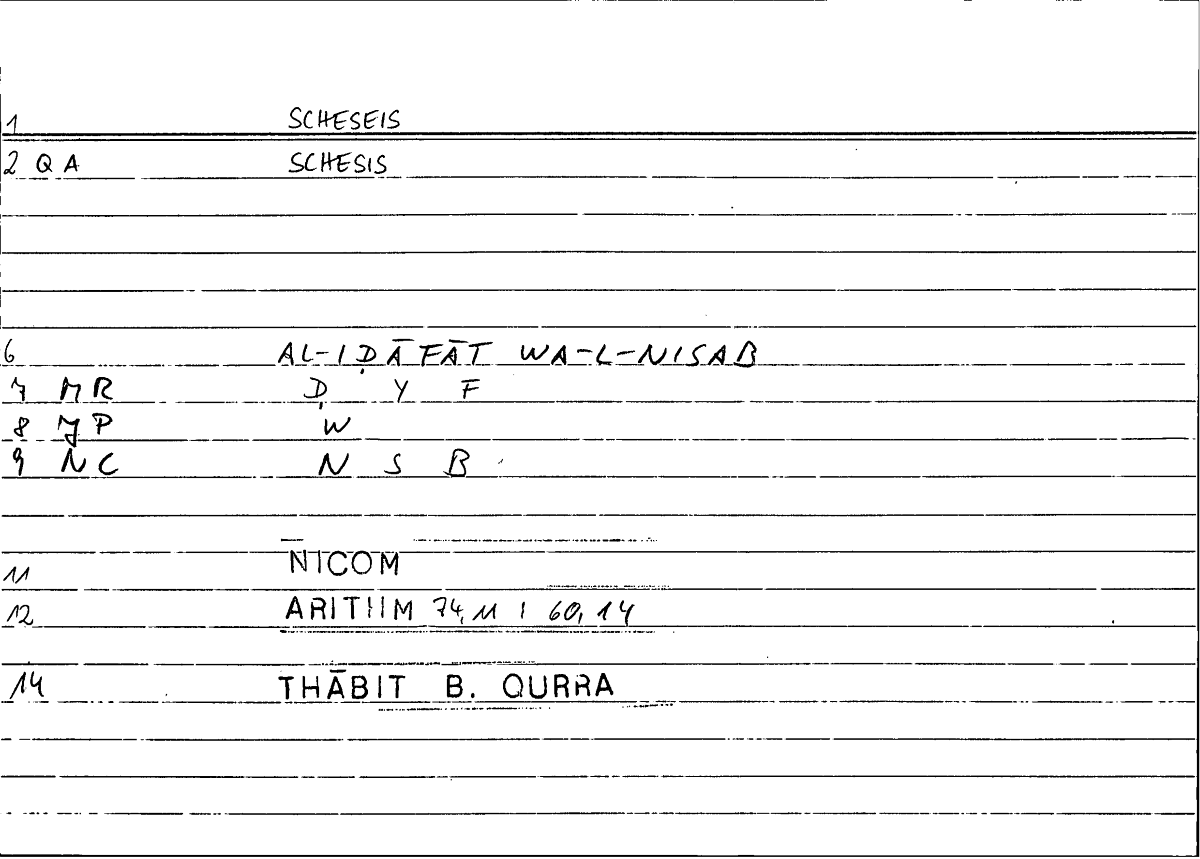 1 SCHESEIS
2 Q A SCHESIS
6 AL-IḌĀFĀT WA-L-NISAB
7 MR Ḍ Y F
8 JP W
9 NC N S B
11 NICOM
12 ARITHM 74,11 | 60,14
14 THĀBIT B. QURRA